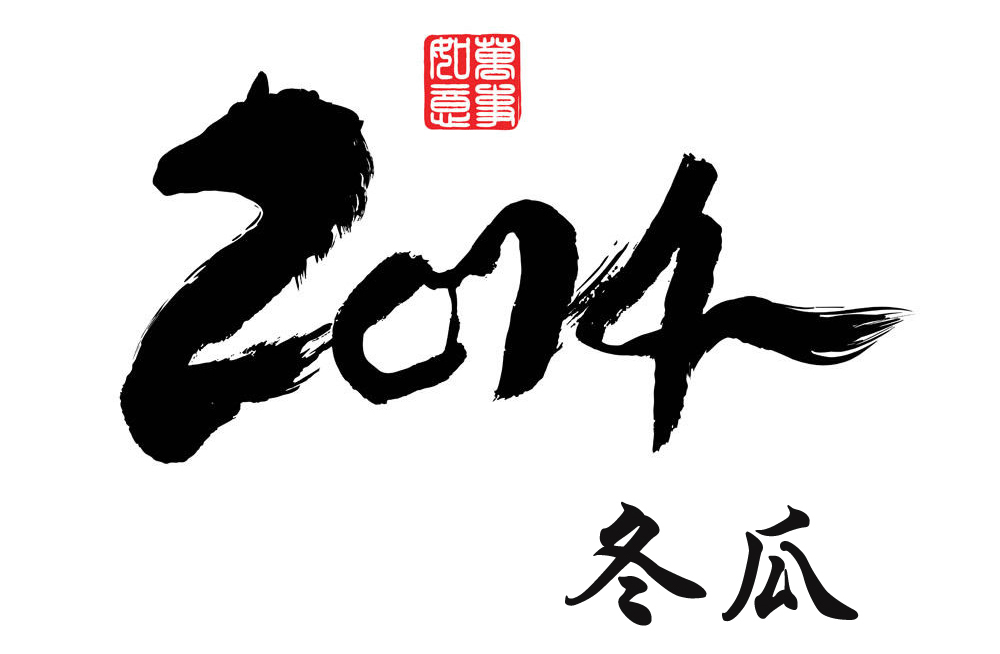 萬事如意
2014
冬瓜